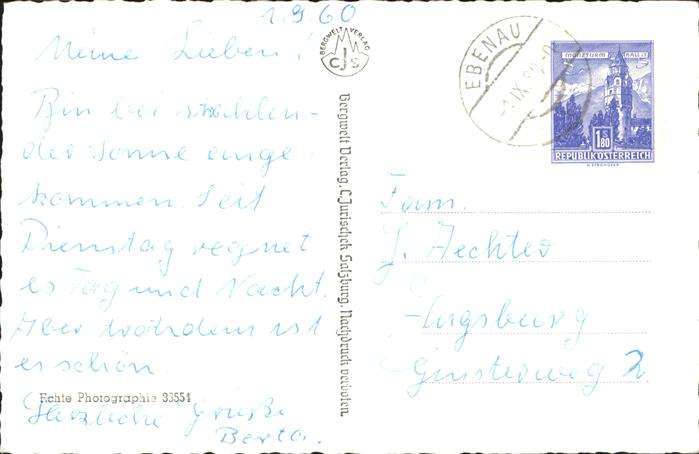 1960
Meine Lieben!
Bin bei strahlen-
der Sonne einge-
kommen. Seit
Dienstag regnet
es Tag und Nacht.
Aber trotzdem ist
es schön
Herzliche Grüße
Berta.
Echte Photographie 33554
BERGWELT VERLAG
CJS
Bergwelt Verlag, C. Jurischek Salzburg. Nachdruck verboten
EBENAU
IX
MÜNZTURM HALL i.T.
1 S 80
REPUBLIK ÖSTERREICH
Fam.
J. Aechter
Augsburg
Ginsterweg 2